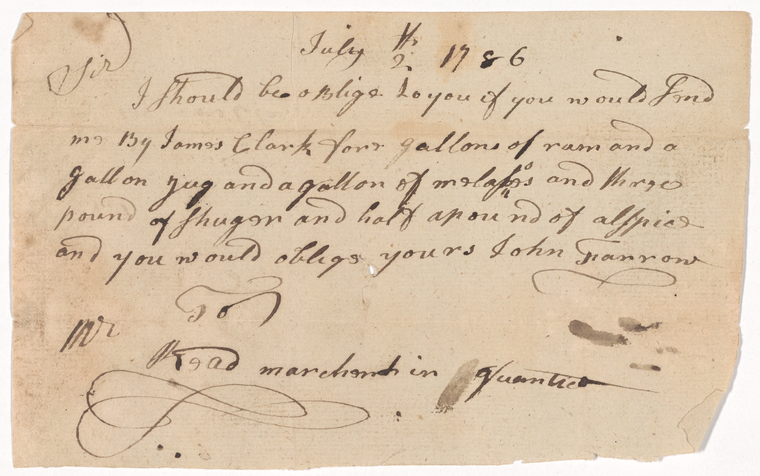 July th 2 1786
Sir
I should be oblige to you if you would Send
me By James Clark fore gallons of rum and a
gallon jug and a gallon of molases and three
pound of Shuger and half a pound of alspice
and you would oblige yours John Farrow
To
Mr
Read marchent in Quantico